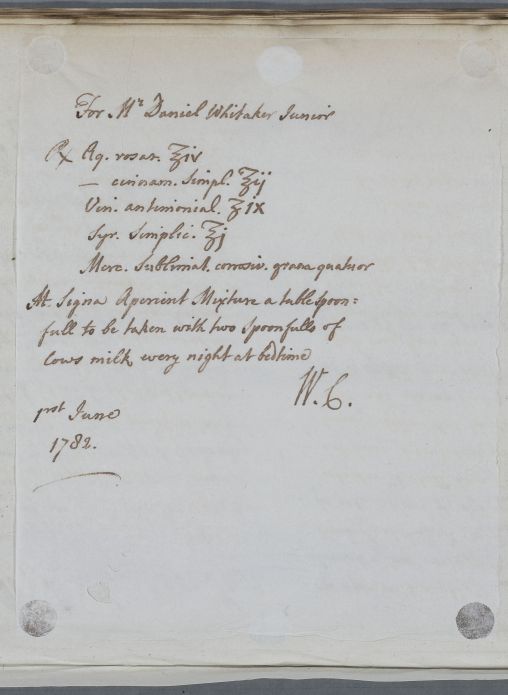 For Mr Daniel Whitaker Junior
Rx Aq. rosar. ℥iv
— cinnam. Simpl. ℥ij
Vin. antimonial. ʒix
Syr. Simplic. ℥j
Merc. Sublimat. corrosiv. grana quatuor
M. Signa Aperient Mixture a table spoon=
full to be taken with two spoonfulls of
Cows milk every night at bedtime
W. C.
prst June
1782.